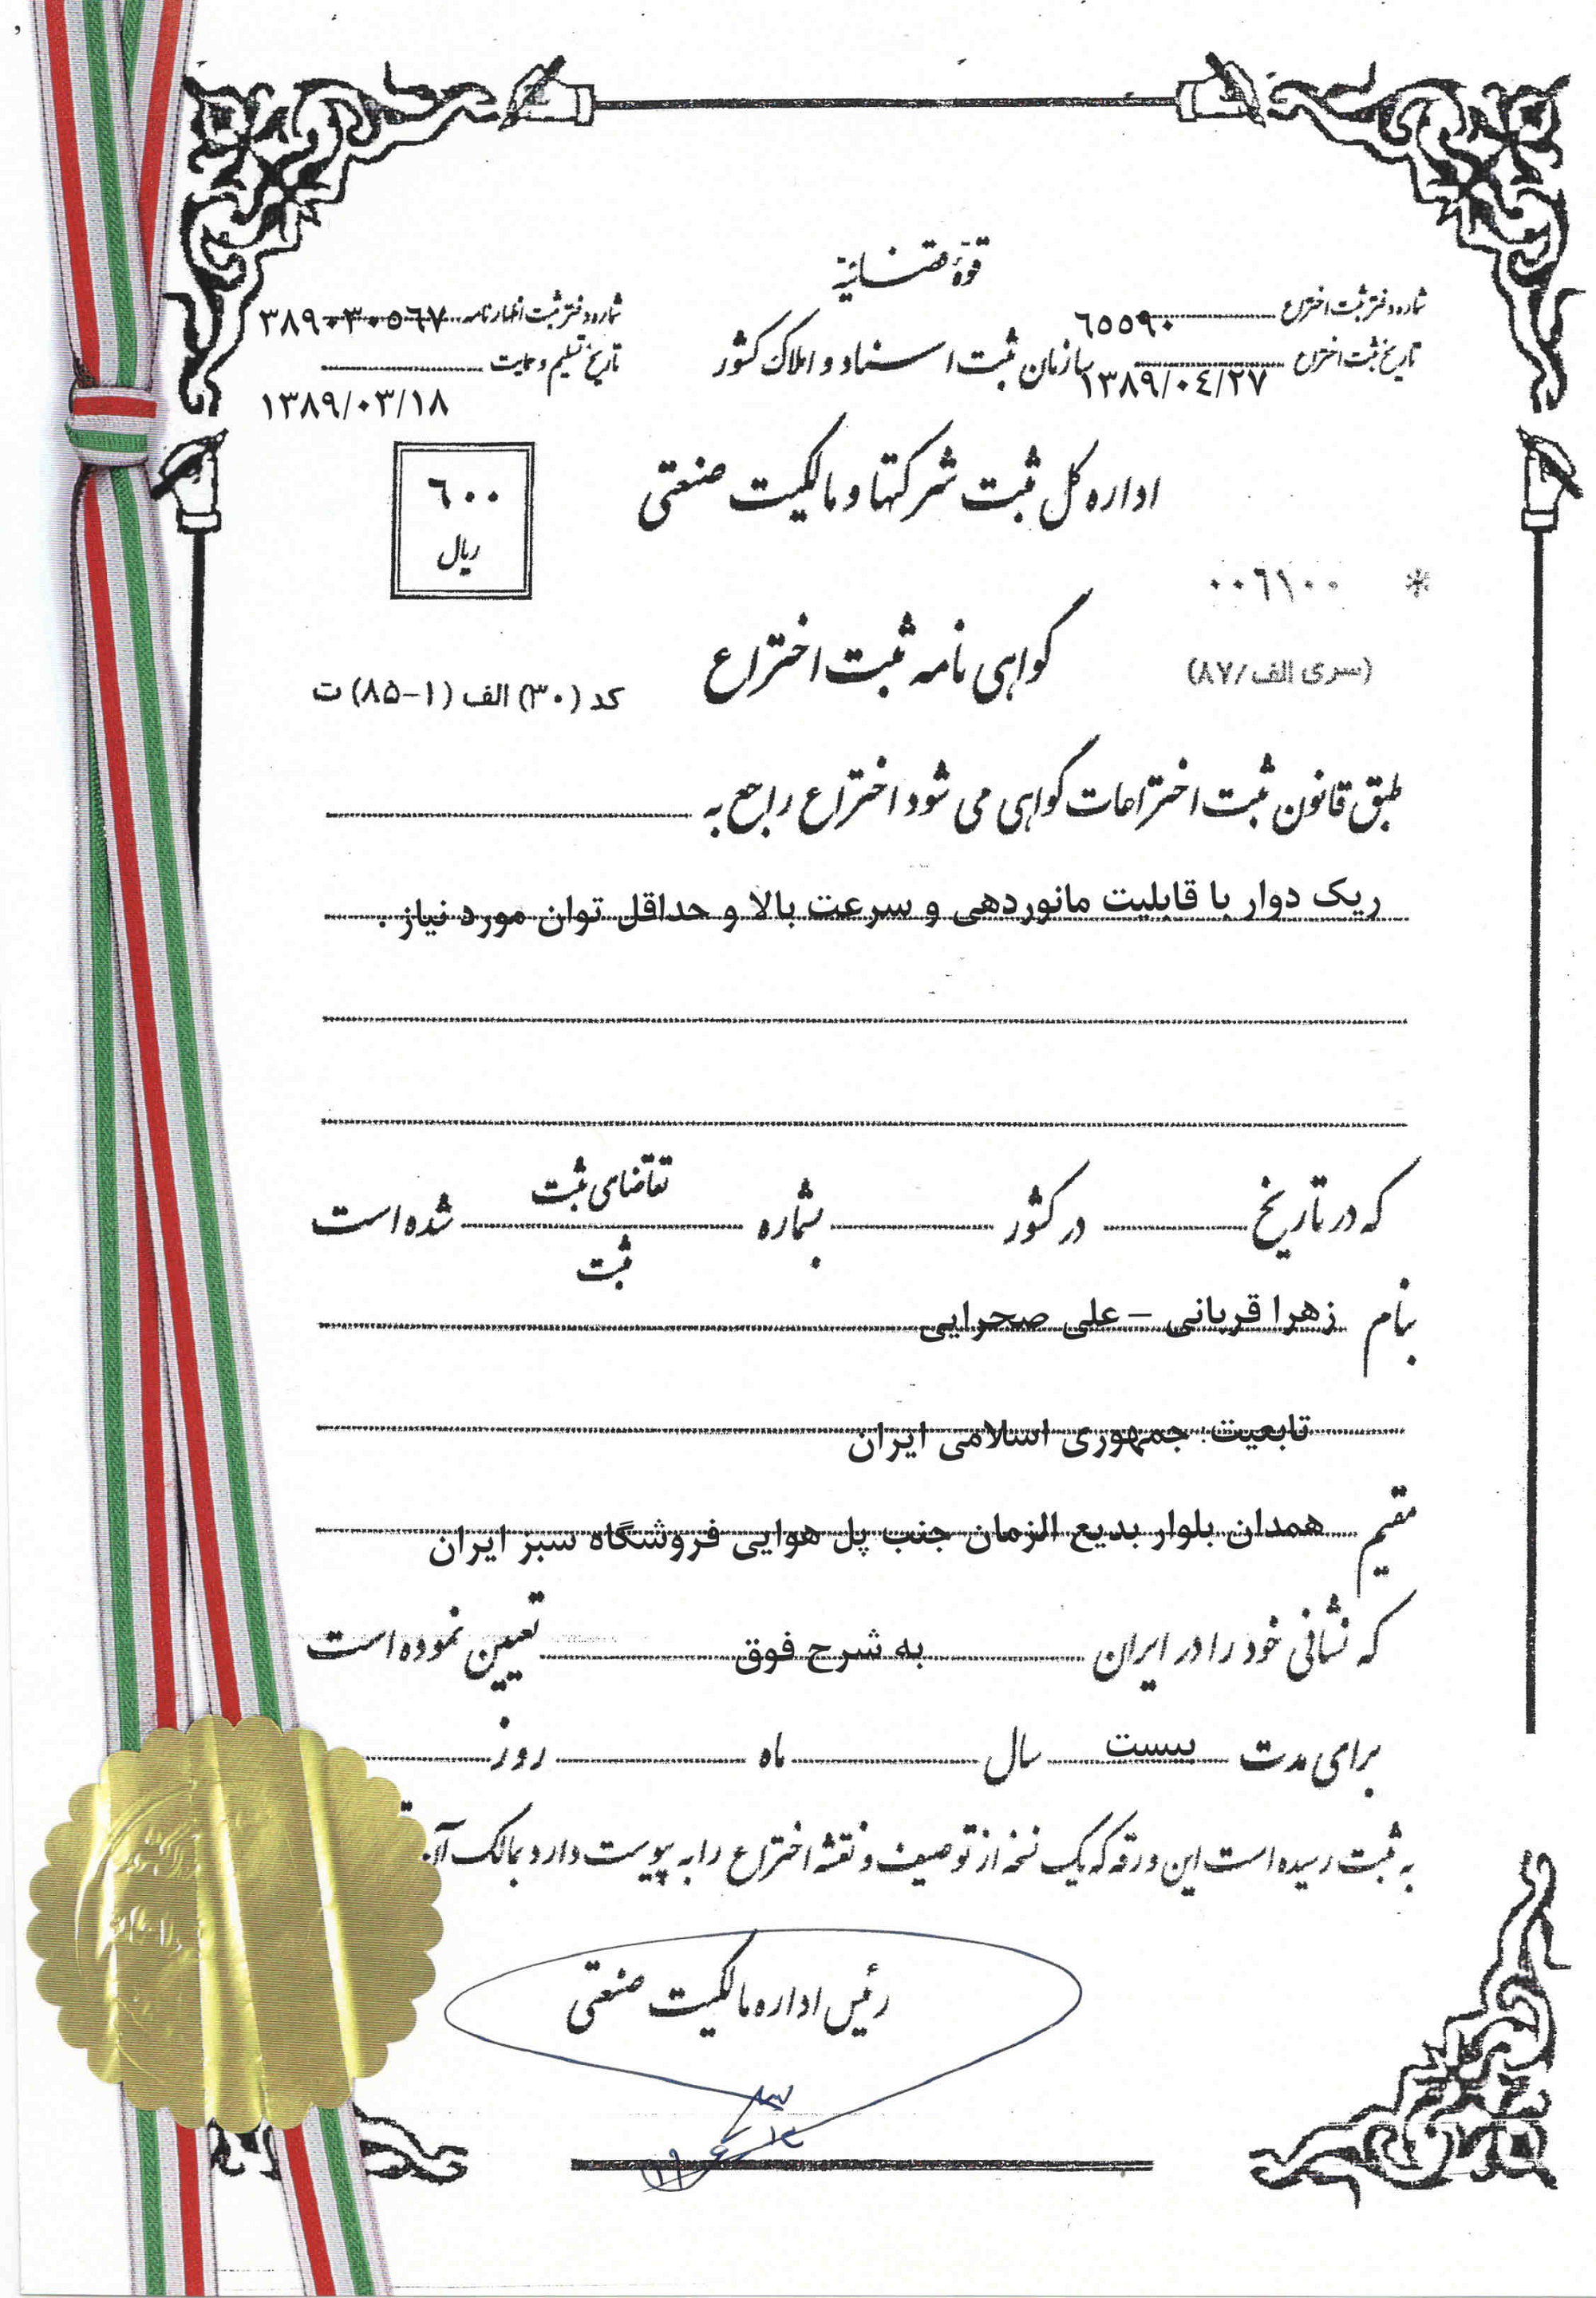 قوهٔ قضائیه
شماره دفتر ثبت اختراع ٦٥٥٩٠
سازمان ثبت اسناد و املاک کشور
شماره دفتر ثبت اظهارنامه ٣٨٩٠٣٠٥٦٧
تاریخ ثبت اختراع ١٣٨٩/٠٤/٢٧
تاریخ تسلیم و حمایت
١٣٨٩/٠٣/١٨
اداره کل ثبت شرکتها و مالکیت صنعتی
٦٠٠
ریال
* ٠٠٦١٠٠
گواهی نامه ثبت اختراع
(سری الف/۸۷)
کد (۳۰) الف (۱-۸۵) ت
طبق قانون ثبت اختراعات گواهی می شود اختراع راجع به
ریک دوار با قابلیت مانوردهی و سرعت بالا و حداقل توان مورد نیاز .
که در تاریخ در کشور بشماره تقاضای ثبت شده است
ثبت
بنام زهرا قربانی – علی صحرایی
تابعیت: جمهوری اسلامی ایران
مقیم همدان بلوار بدیع الزمان جنب پل هوایی فروشگاه سبز ایران
که نشانی خود را در ایران به شرح فوق تعیین نموده است
برای مدت بیست سال ماه روز
به ثبت رسیده است این ورقه که یک نسخه از توصیف و نقشه اختراع را به پیوست دارد بمالک آن
رئیس اداره مالکیت صنعتی